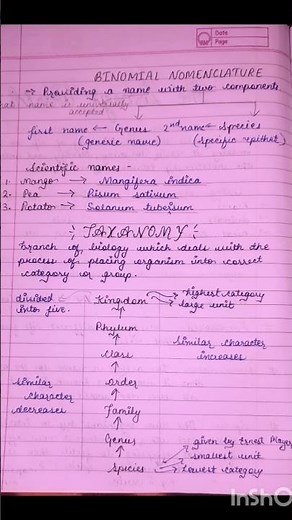 Date
Page
BINOMIAL NOMENCLATURE
→ Providing a name with two components
that name is universally
accepted
first name ← Genus 2nd name ← Species
(generic name) (Specific epithet)
Scientific names -
1. Mango → Mangifera indica
2. Pea → Pisum sativum
3. Potator → Solanum tubersum
TAXANOMY
Branch of biology which deals with the
process of placing organism into correct
category or group.
divided ← Kingdom → highest category
into five. → large unit
Phylum
Class Similar character
increases
Similar Order
character
decreases Family
Genus given by Ernest Mayer
smallest unit
Species → lowest category
InSho